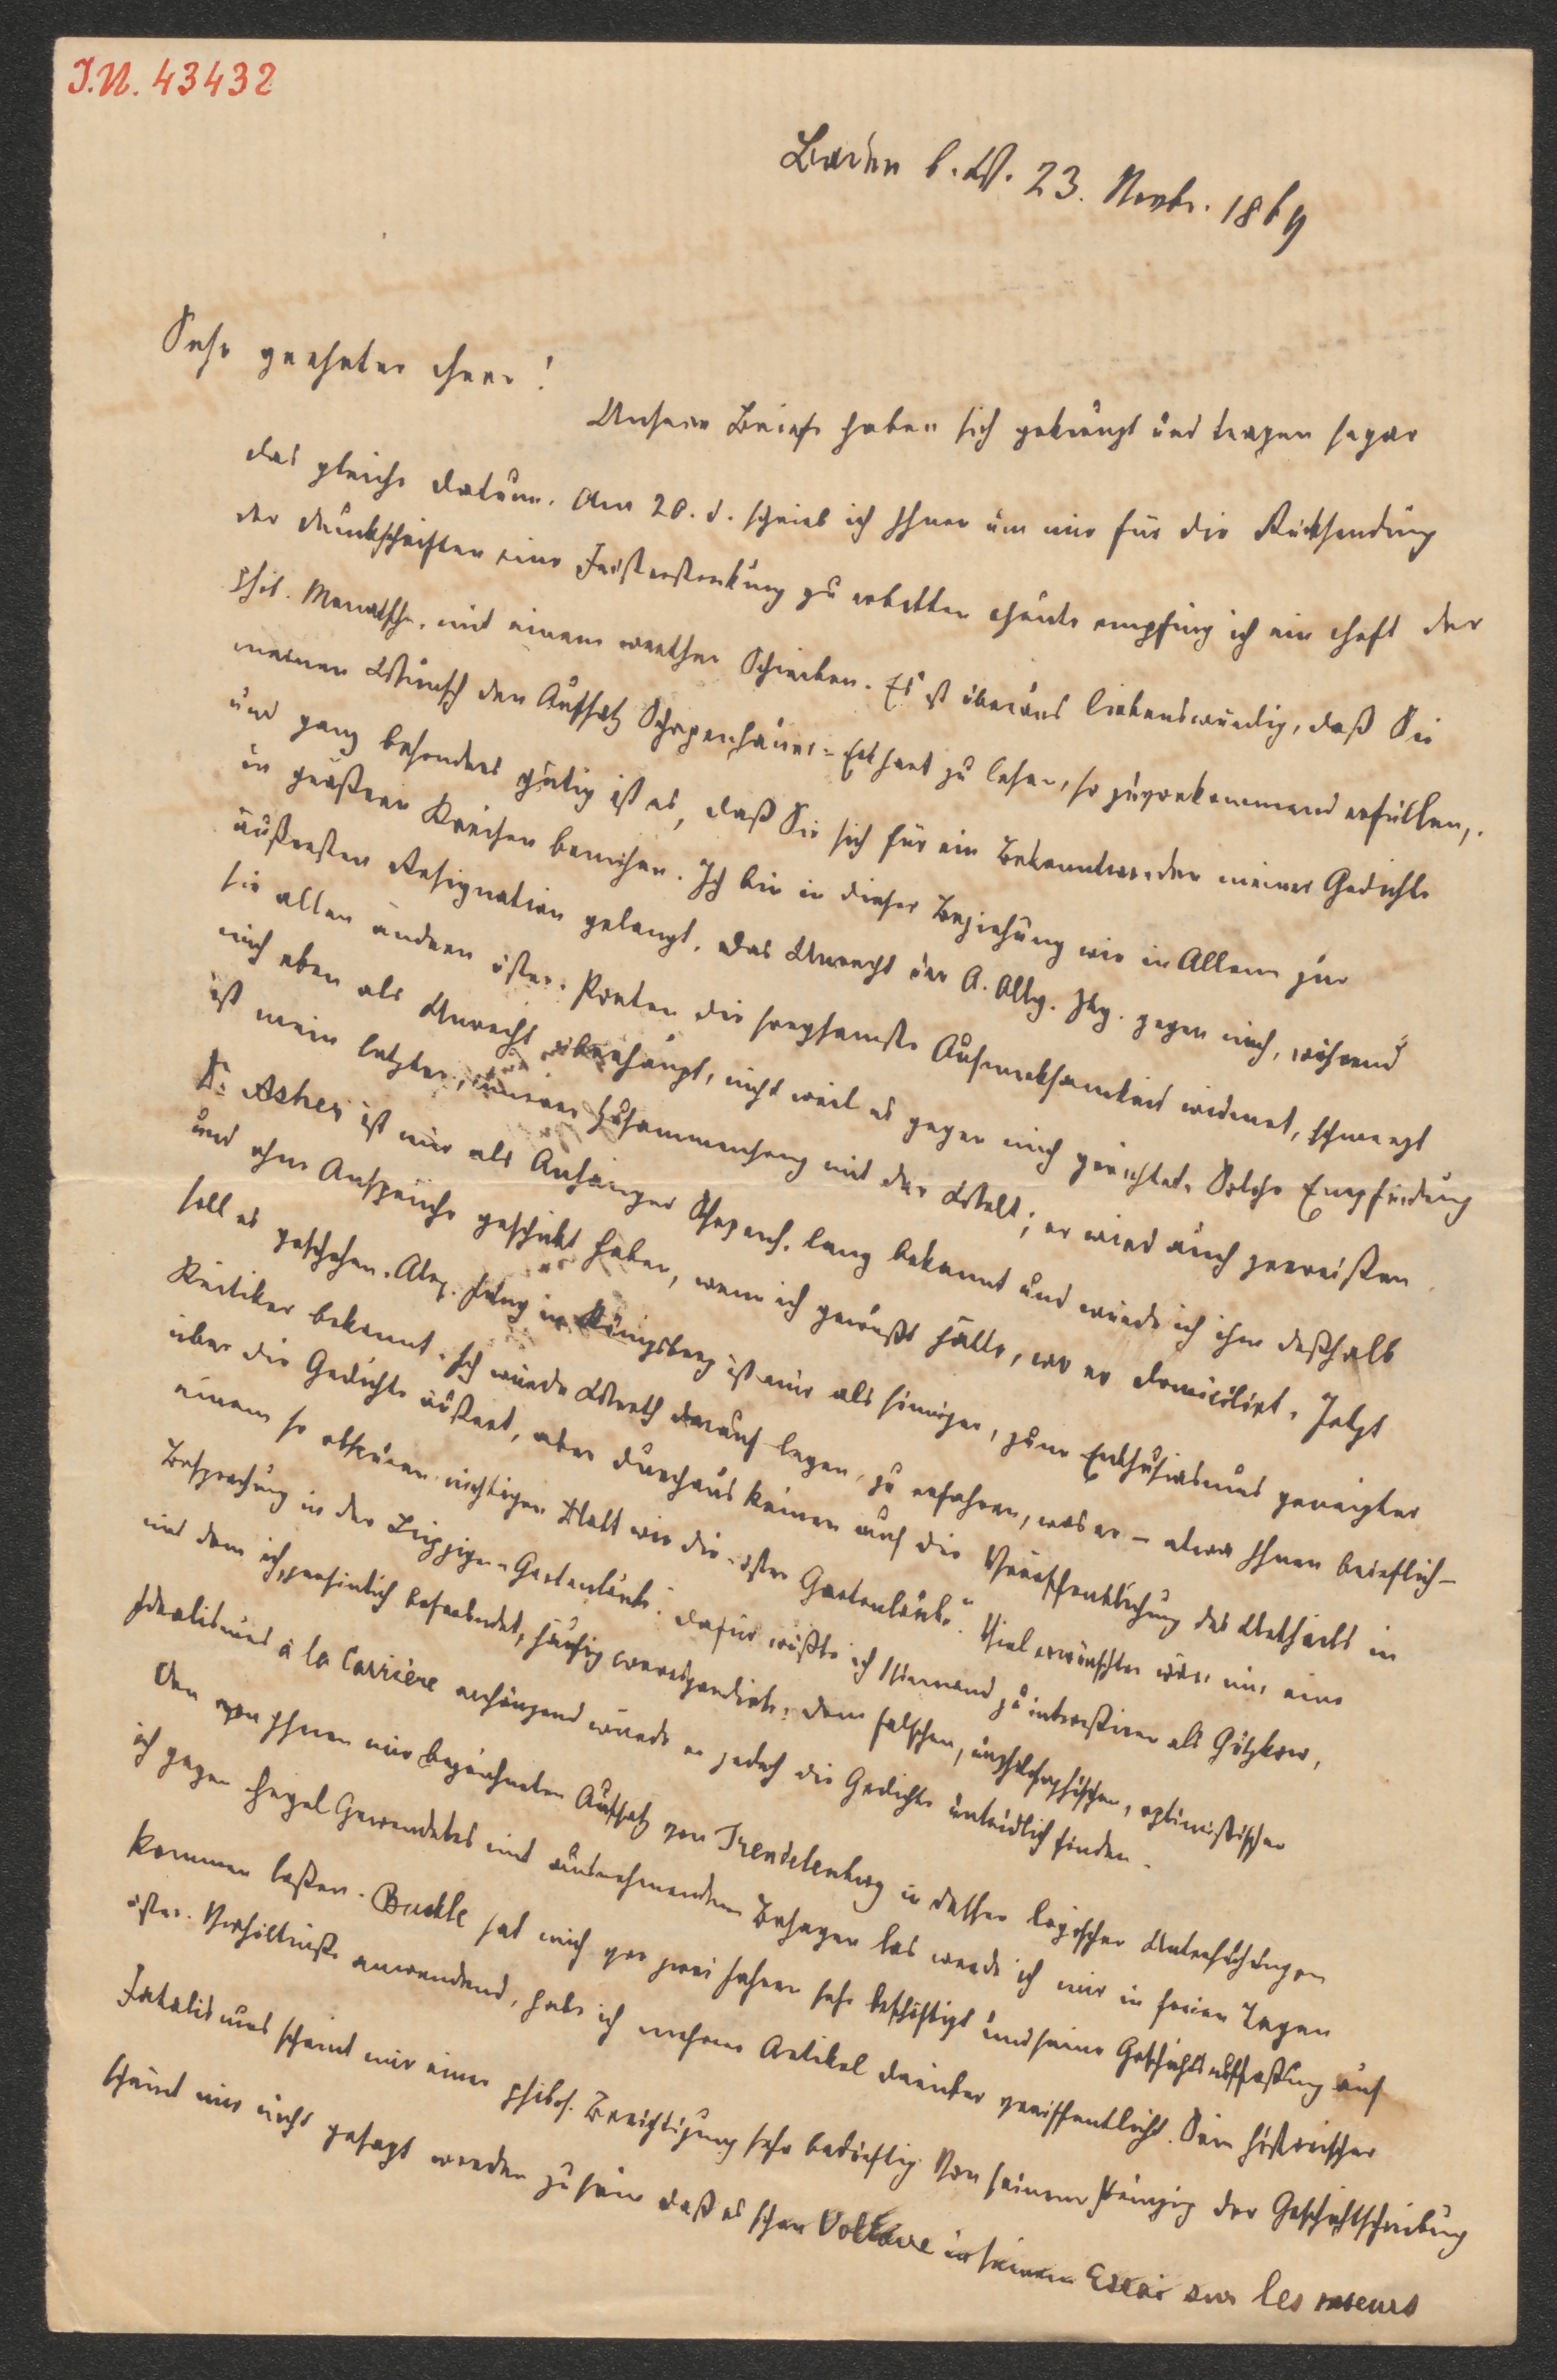 I.N. 43432
Baden b. W. 23. Novbr. 1869
Sehr geehrter Herr!
Unsere Briefe haben sich gekreuzt und tragen sogar
das gleiche Datum. Am 20. d. schrieb ich Ihnen um mir für die Rücksendung
der Druckschriften eine Fristerstreckung zu erbitten heute empfing ich ein Heft der
phil. Monatsh. mit einem werthen Schreiben. Es ist überaus liebenswürdig, daß Sie
meinen Wunsch den Aufsatz Schopenhauer-Eckhart zu lesen, so zuvorkommend erfüllen,
und ganz besonders gütig ist es, daß Sie sich für ein Bekanntwerden meiner Gedichte
in größeren Kreisen bemühen. Ich bin in dieser Beziehung wie in Allem zur
äußersten Resignation gelangt. Das Unrecht der A. Allg. Ztg. gegen mich, während
sie allen andern öster. Poeten die sorgsamste Aufmerksamkeit widmet, schmerzt
mich eben als Unrecht überhaupt, nicht weil es gegen mich gerichtet. Solche Empfindung
ist mein letzter, innerer Zusammenhang mit der Welt; er wird auch zerreißen.
Dr Asher ist mir als Anhänger Schopenh. lang bekannt und würde ich ihm deßhalb
und ohne Ansprüche geschickt haben, wenn ich gewußt hätte, wo er domicilirt. Jetzt
soll es geschehen. Alex. Jung in Königsberg ist mir als sinniger, zum Enthusiasmus geneigter
Kritiker bekannt. Ich würde Werth darauf legen, zu erfahren, was er – etwa Ihnen brieflich –
über die Gedichte äußert, aber durchaus keinen auf die Veröffentlichung des Urtheils in
einem so obscuren nichtigen Blatt wie die „öster Gartenlaube“. Viel erwünschter wäre mir eine
Besprechung in der Leipziger „Gartenlaube“. Dafür wüßte ich Niemand zu interessiren als Gutzkow,
mit dem ich, persönlich befreundet, häufig correspondirte; dem falschen, unphilosophischen, optimistischen
Idealismus à la Carrière anhängend würde er jedoch die Gedichte unleidlich finden.
Den von Ihnen mir bezeichneten Aufsatz von Trendelenburg in dessen logischen Untersuchungen
ich gegen Hegel Gewendetes mit ausnehmendem Behagen las werde ich mir in freien Tagen
kommen laßen. Buckle hat mich vor zwei Jahren sehr beschäftigt und seine Geschichtsauffaßung auf
öster. Verhältniße anwendend, habe ich mehrere Artikel darüber veröffentlicht. Sein historischer
Fatalismus scheint mir einer philos. Berichtigung sehr bedürftig. Von seinem Prinzip der Geschichtschreibung
scheint mir nicht gesagt worden zu sein daß es schon Voltaire in seinem Essai sur les moeurs